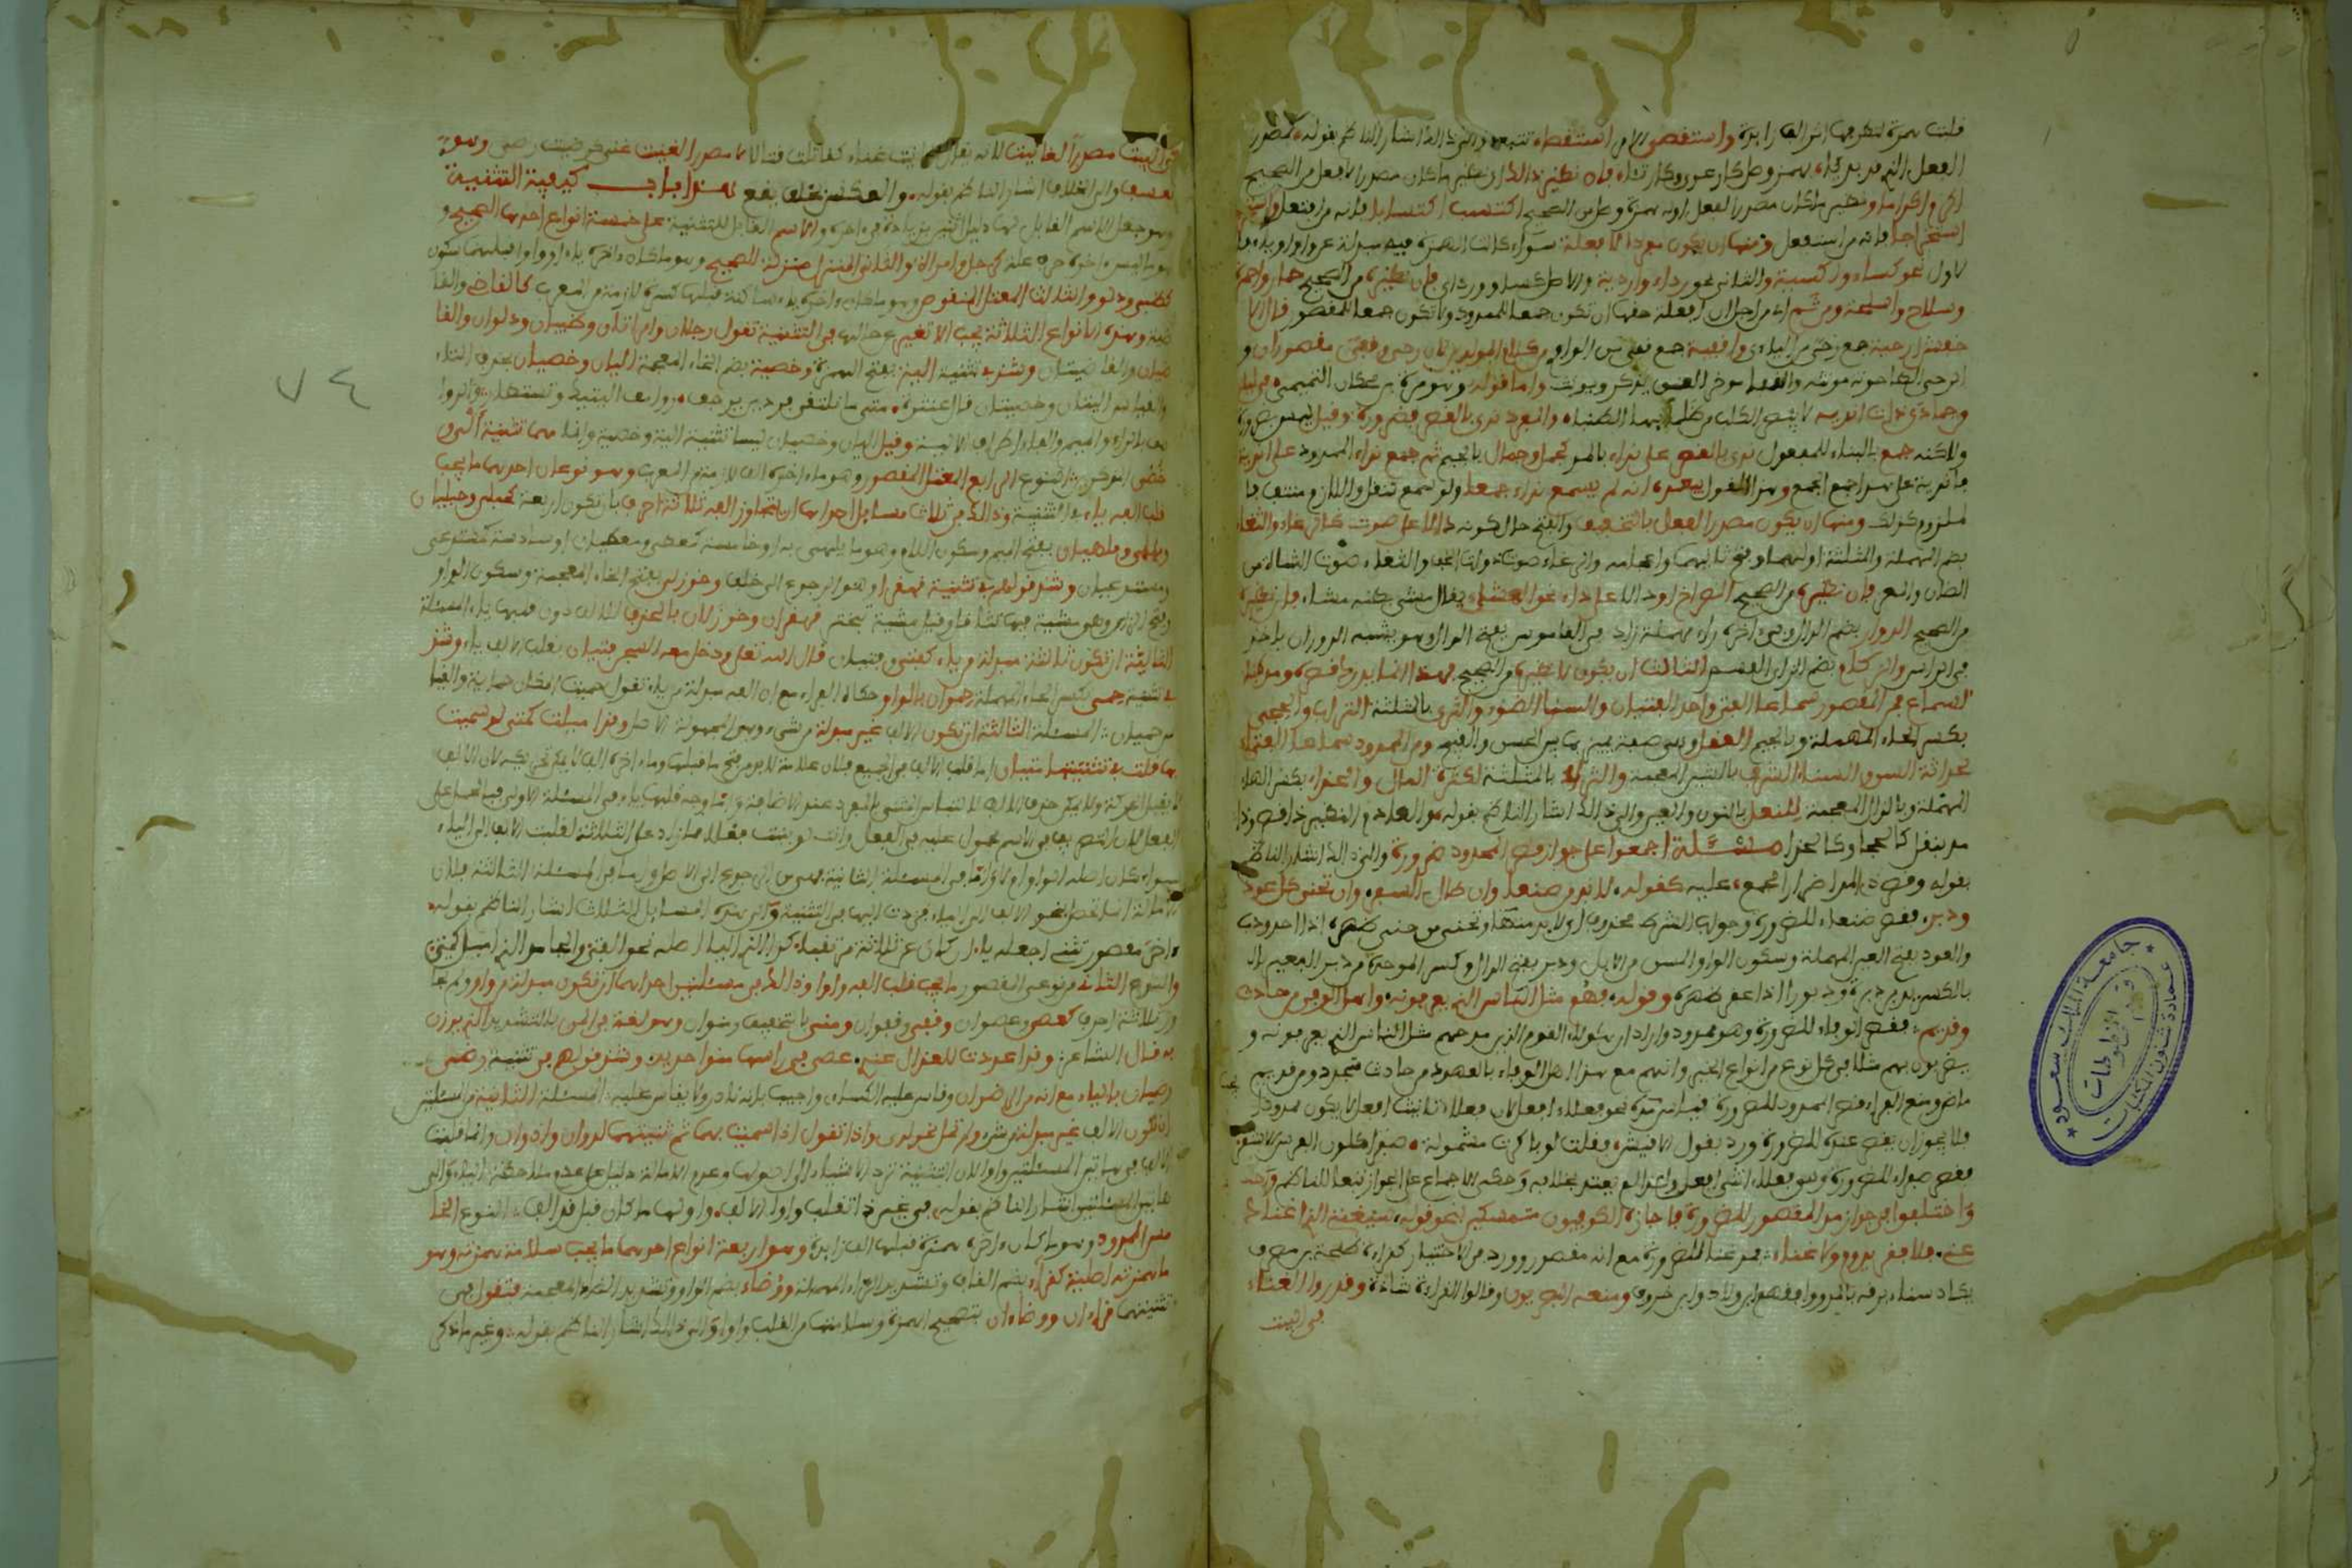 قلبت همزة لتطرفها اثر الف زائدة واستقصى استقصاء والى ذلك اشار الناظم بقوله كمصدر
الفعل الذي قد بدئ بهمز وصل كارعوى وكارتأى فان نظير ذلك
اكرم اكراما ونظير ما كان مصدرا لفعل اوله همزة وصل من الصحيح اكتسب اكتسابا فانه من افتعل واستخرج
استخراجا فانه من استفعل ومنها ان يكون مفردا لافعلة سواء كانت الهمزة فيه مبدلة عن واو او ياء
الاول نحو كساء واكسية والثاني نحو رداء واردية والاصل كساو ورداي فان نظيره من الصحيح حمار واحمرة
وسلاح واسلحة ومن ثم اي من اجل ان افعلة حقها ان تكون جمعا للممدود ولا تكون جمعا للمقصور قال الا
خفش ارحية جمع رحى واقفية جمع قفى من كلام المولدين لان رحى وقفى مقصوران و
الرحى الطاحونة مؤنثة والقفا مؤخر العنق يذكر ويؤنث واما قوله وهو مرة بن محكان التميمي في ليلة
من جمادى ذات اندية لا يبصر الكلب من ظلمائها الطنبا والمفرد ندى بالقصر فضرورة وقيل
ولكنه جمع بالبناء للمفعول ندى بالقصر على نداء بالمد كجمل وجمال بالجيم ثم جمع نداء الممدود على اندية
فاندية على هذا جمع الجمع وهذا القول يبعده انه لم يسمع نداء جمعا ولو سمع لنقل واللازم منتف فا
لملزوم كذلك ومنها ان يكون مصدرا لفعل بالتخفيف والفتح حال كونه دالا على صوت كالرغاء والثغاء
بضم المهملة والمثلثة اولهما وفتح ثانيهما واعجامه والرغاء صوت ذوات الخف والثغاء صوت الشاة من
الضأن والمعز فان نظيره من الصحيح الصراخ او دالا على داء نحو المشاء يقال مشى بطنه مشاء فان نظيره
من الصحيح الدوار بضم الدال وفي اخره راء مهملة زاد في القاموس بفتح الدال وهو يشبه الدوران ياخذ
في الراس والزكام بضم الزاي القسم الثالث ان يكون لا نظير له من الصحيح فهذا انما يدرك قصره ومده
بالسماع فمن المقصور سماعا الفتى واحد الفتيان والسنا الضوء والثرى بالمثلثة التراب والحجى
بكسر الحاء المهملة وبالجيم العقل وهو صفة يميز بها بين الحسن والقبيح ومن الممدود سماعا الفتاء
لحداثة السن والسناء الشرف بالشين المعجمة والثراء بالمثلثة لكثرة المال والحذاء بكسر الحاء
المهملة وبالذال المعجمة للنعل بالنون والعين والى ذلك اشار الناظم بقوله والعادم النظير ذا قصر وذا
مد بنقل كالحجا وكالحذا مسئلة اجمعوا على جواز قصر الممدود ضرورة والى ذلك اشار الناظم
بقوله وقصر ذي المد اضطرارا مجمع عليه كقوله لا بد من صنعا وان طال السفر وان تحنى كل عود
ودبر فقصر صنعاء للضرورة وجواب الشرط محذوف اي لا بد منها وتحنى من حنى ظهره اذا احدودب
والعود بفتح العين المهملة وسكون الواو المسن من الابل ودبر بفتح الدال وكسر الموحدة من دبر البعير
بالكسر يدبر دبرة ودبورا اذا عقر ظهره وقوله فهم مثل الناس الذي يعرفونه واهل الوفا من حادث
وقديم فقصر الوفاء للضرورة وهو ممدود واراد ان هؤلاء القوم الذين مدحهم مثل الناس الذي يعرفونه و
يضربون بهم مثلا في كل نوع من انواع الخير وانهم مع هذا اهل الوفاء بالعهود من حادث متجدد ومن قديم
ماض ومنع الفراء قصر الممدود للضرورة فيما له نحو فعلاء افعل لان فعلاء تانيث افعل لا يكون ممدودا
فلا يجوز ان يقصر عنده للضرورة ورد بقول الاقيشر فقلت لو باكرت مشمولة صفرا كلون الفرس الاشقر
فقصر صفراء للضرورة وهو فعلاء انثى افعل واعلم لم يعتد بخلافه وحكى الاجماع على الجواز تبعا للناظم
واختلفوا في جواز مد المقصور للضرورة فاجازه الكوفيون متمسكين بنحو قوله سيغنيني الذي اغناك
عني فلا فقر يدوم ولا غناء فمد غنا للضرورة مع انه مقصور وورد في الاختيار كقراءة طلحة بن مصرف
يكاد سناء برقه بالمد ووافقهم ابن ولاد وابن خروف ومنعه البصريون وقالوا القراءة شاذة وقدروا الغناء
في البيت
٧٤
في البيت مصدرا لغانيت لانه يقال غانيت غناء كقاتلت قتالا لا مصدرا لغنيت غنى كرضيت رضى وهو
تعسف والى الخلاف اشار الناظم بقوله والعكس بخلف يقع هذا باب كيفية التثنية
وهو جعل الاسم القابل لها دليل اثنين بزيادة في اخره والاسم القابل للتثنية على خمسة انواع احدها الصحيح و
هو ما ليس اخره حرف علة كرجل وامراة والثاني المنزل منزلة الصحيح وهو ما كان اخره ياء او واوا قبلهما سكون
كظبي ودلو والثالث المعتل المنقوص وهو ما كان اخره ياء ساكنة قبلها كسرة لازمة من المعرب كالقاضي والقا
ضية وهذه الانواع الثلاثة يجب الا تغير عن حالها في التثنية تقول رجلان وامراتان وظبيان ودلوان والقا
ضيان والقاضيتان وشذ في تثنية الية بفتح الهمزة وخصية بضم الخاء المعجمة اليان وخصيان بحذف التاء
والقياس اليتان وخصيتان قال عنترة متى ما تلتقي فردين ترجف روانف اليتيك وتستطارا والروا
نف بالراء والفاء اطراف الالية وقيل اليان وخصيان ليسا تثنية الية وخصية وانما هما تثنية الي و
خصي النوع الرابع المعتل المقصور وهو ما اخره الف لازمة من المعرب وهو نوعان احدهما ما يجب
قلب الفه ياء في التثنية وذلك في ثلاث مسائل احداها ان تتجاوز الفه ثلاثة احرف بان تكون رابعة كحبلى وحبليان
وملهى وملهيان بفتح الميم وسكون اللام وهو ما يلهى به او خامسة كمعطى ومعطيان او سادسة كمستدعى
ومستدعيان وشذ قولهم في تثنية قهقرى وهو الرجوع الى خلف وخوزلى بفتح الخاء المعجمة وسكون الواو
وفتح الزاي وهو مشية فيها تثاقل وقيل مشية تبختر قهقران وخوزلان بالحذف للالف دون قلبها ياء المسئلة
الثانية ان تكون ثالثة مبدلة من ياء كفتى وفتيان قال الله تعالى ودخل معه السجن فتيان بقلب الالف ياء وشذ
في تثنية حمى بكسر الحاء المهملة حموان بالواو حكاه الفراء مع ان الفه مبدلة من ياء تقول حميت المكان حماية والقيا
س حميان المسئلة الثالثة ان تكون الالف غير مبدلة من شيء وهي المجهولة الاصل وقد اميلت كمتى لو سميت
بها قلت في تثنيتها متيان اما قلب الالف في الجميع فلان علامة لا بد من فتح ما قبلها وما اخره الف لا يمكن تحريكه لان الالف
لا تقبل الحركة ولا يمكن حذف الالف لالتباس المثنى بالمفرد عند الاضافة واما وجه قلبها ياء في المسئلة الاولى فبالحمل على
الفعل لان التصريف في الاسم محمول عليه في الفعل وانت لو بنيت فعلا مما زاد على الثلاثة لقلبت الالف الى الياء
سواء كان اصله الواو ام لا واما في المسئلة الثانية فهو من الرجوع الى الاصل واما في المسئلة الثالثة فلان
الامالة انما تنحو نحو الالف الى الياء فردت اليها في التثنية والى هذه المسائل الثلاث اشار الناظم بقوله
اخر مقصور تثني اجعله يا ان كان عن ثلاثة مرتقيا كذا الذي اليا اصله نحو الفتى والجامد الذي اميل كمتى
والنوع الثاني من نوعي المقصور ما يجب قلب الفه واوا وذلك في مسئلتين احداهما ان تكون مبدلة من واو ولم تجا
وز ثلاثة احرف كعصى وعصوان وقفى وقفوان ومنى بالتخفيف ومنوان وهو لغة في المن بالتشديد الذي يوزن
به قال الشاعر وقد اعددت للعذال عندي عصى في راسها منوا حديد وشذ قولهم في تثنية رضى
رضيان بالياء مع انه من الرضوان وقاس عليه الكسائي واجيب بانه نادر ولا يقاس عليه المسئلة الثانية من المسئلتين
ان تكون الالف غير مبدلة من شيء ولم تمل نحو لدى واذا تقول اذا سميت بهما ثم ثنيتهما لدوان واذوان وانما قلبت
الالف في هاتين المسئلتين واوا لان التثنية ترد الاشياء الى اصولها وعدم الامالة دليل على عدم ملاحظة الياء والى
هاتين المسئلتين اشار الناظم بقوله في غير ذا تقلب واوا الالف واولها ما كان قبل قد الف النوع الخا
مس الممدود وهو ما كان اخره همزة قبلها الف زائدة وهو اربعة انواع احدها ما يجب سلامة همزته وهو
ما همزته اصلية كقراء بضم القاف وتشديد الراء المهملة ووضاء بضم الواو وتشديد الضاد المعجمة فتقول في
تثنيتهما قراءان ووضاءان بتصحيح الهمزة وسلامتها من القلب واوا والى ذلك اشار الناظم بقوله وغير ما ذكر
جامعة الملك سعود
عمادة شئون المكتبات
قسم المخطوطات